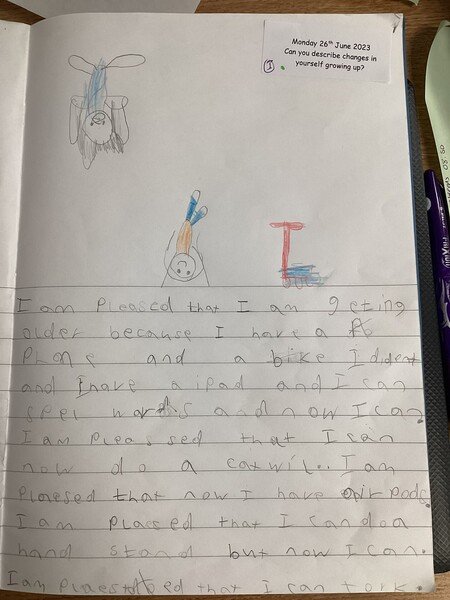 Monday 26th June 2023
Can you describe changes in
yourself growing up?
I
I am Pleascd that I am geting
older because I have a
Phone and a bike I dident
and I have a ipad and I can
spel words and now I can.
I am Pleassed that I can
now do a catwil.. I am
Plaesed that now I have air Pods.
I am Plaesed that I can do a
hand stand but now I can.
I am that I can tork.